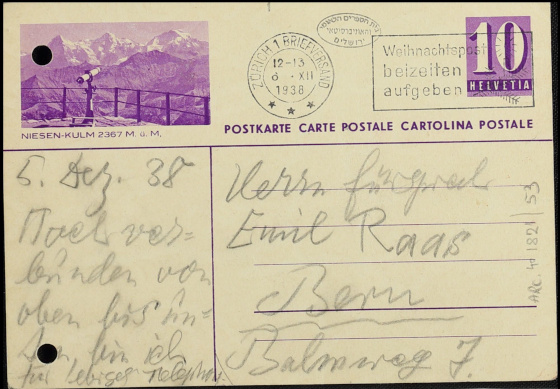 NIESEN-KULM 2367 M. ü. M.
ZÜRICH 1 BRIEFVERSAND
12-13
6. XII
1938
בית הספרים הלאומי
והאוניברסיטאי
ירושלים
Weihnachtspost
beizeiten
aufgeben
10
HELVETIA
POSTKARTE CARTE POSTALE CARTOLINA POSTALE
5. Dez. 38
Noch ver=
bunden von
oben bis un=
ten, bin ich
für
Herrn Fürsprech
Emil Raas
Bern
Balmweg 7.
ARC. 4° 1821/53